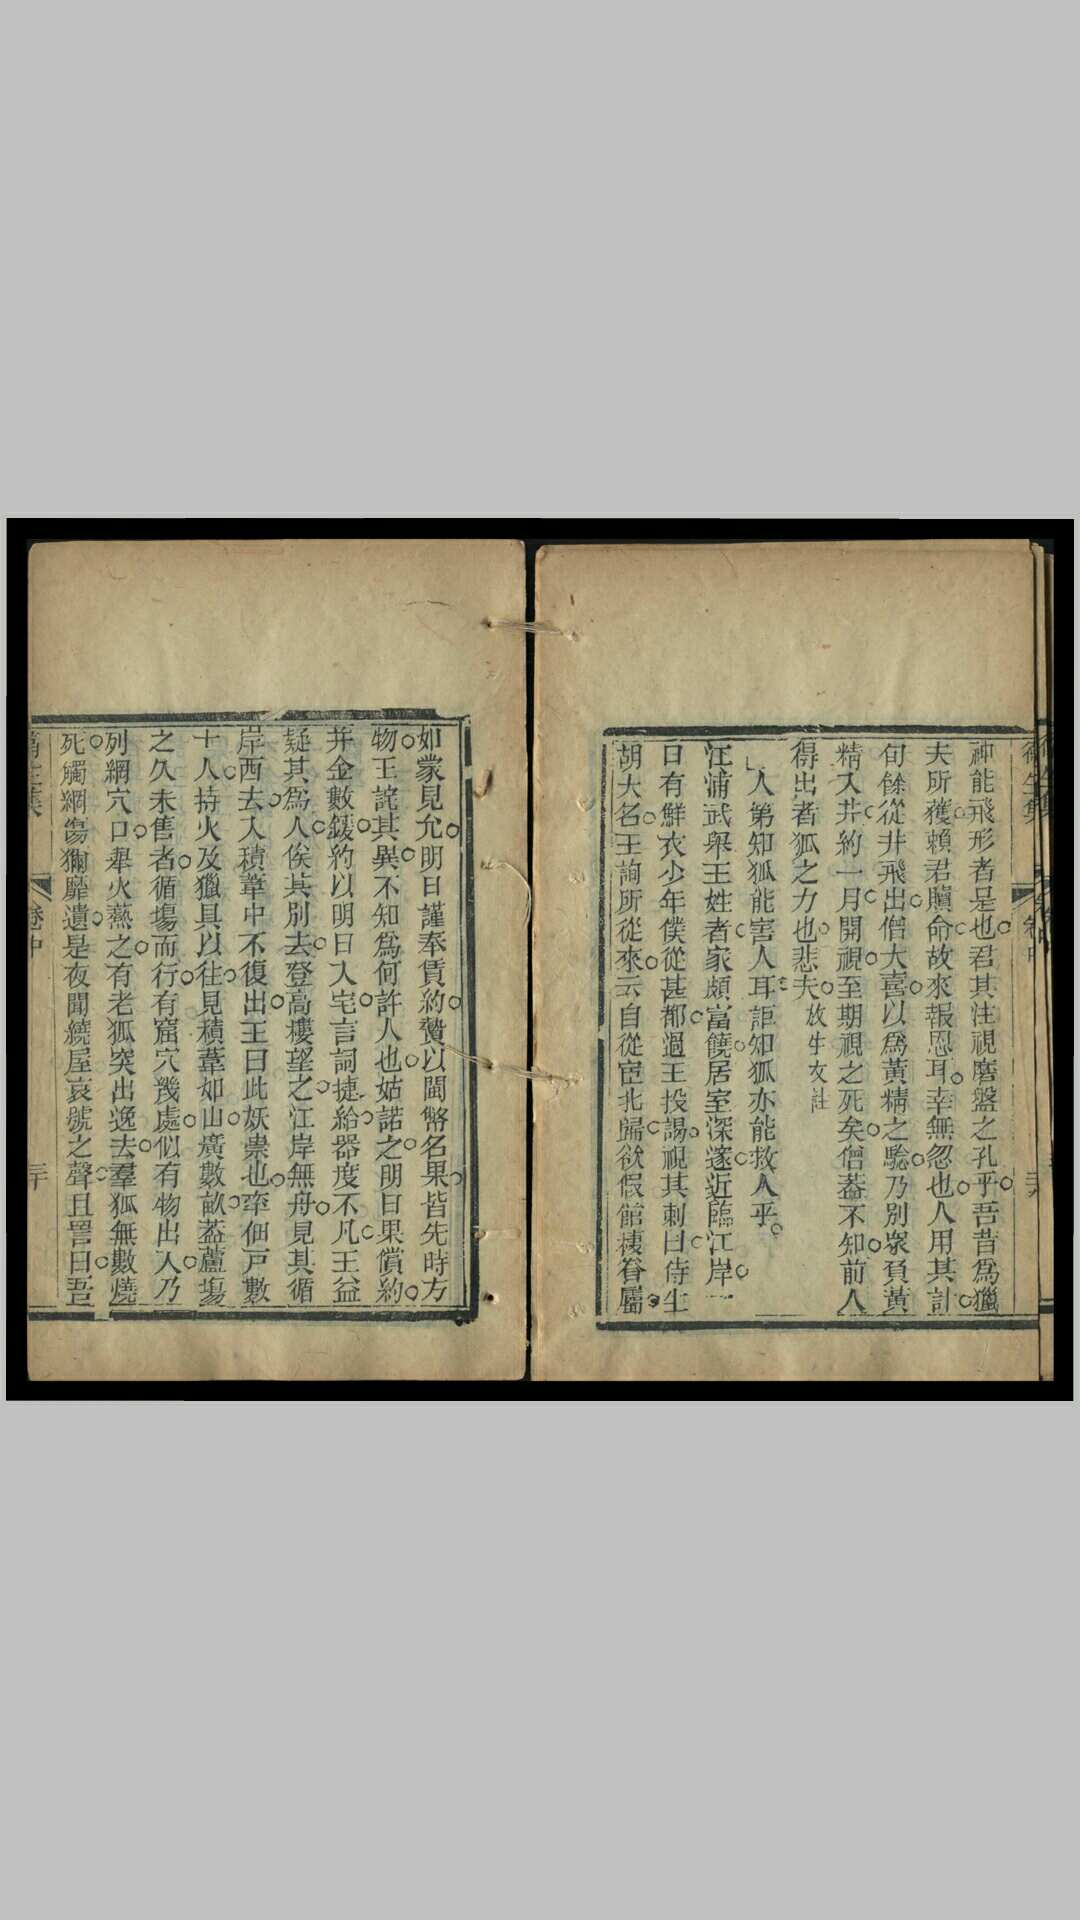 衛生集
卷中
神能飛形者是也君其注視磨盤之孔乎吾昔爲獵
夫所獲賴君贖命故來報恩耳幸無忽也人用其計
旬餘從井飛出僧大喜以爲黃精之驗乃別衆負黃
精入井約一月開視至期視之死矣僧葢不知前人
得出者狐之力也悲夫放生女註
人第知狐能害人耳詎知狐亦能救人乎
江浦武舉王姓者家頗富饒居室深邃近臨江岸一
日有鮮衣少年僕從甚都過王投謁視其刺曰侍生
胡大名王詢所從來云自從宦北歸欲假館棲眷屬
如蒙見允明日謹奉賃約贄以閩幣名果皆先時方
物王詫其異不知爲何許人也姑諾之明日果償約
并金數鍰約以明日入宅言詞捷給器度不凡王益
疑其爲人俟其別去登高樓望之江岸無舟見其循
岸西去入積葦中不復出王曰此妖祟也率佃戶數
十人持火及獵具以往見積葦如山廣數畝葢蘆場
之久未售者循塲而行有窟穴幾處似有物出入乃
列網穴口舉火爇之有老狐突出逸去羣狐無數燒
死觸網傷獮靡遺是夜聞繞屋哀號之聲且詈曰吾
衛生集
卷中
三十